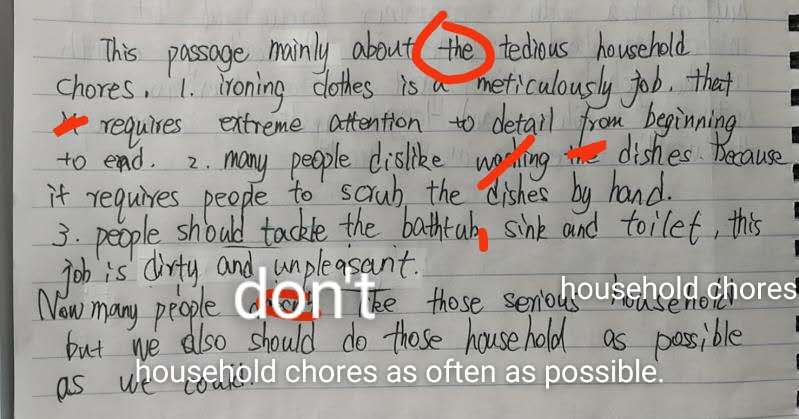 This passage mainly about the tedious household
chores. 1. ironing clothes is a meticulously job. that
requires extreme attention to detail from beginning
to end. 2. many people dislike washing the dishes. Because
it requires people to scrub the dishes by hand.
3. people should tackle the bathtub, sink and toilet, this
job is dirty and unpleasant.
Now many people don't like those serious household household chores
but we also should do those household as possible
as we could. household chores as often as possible.